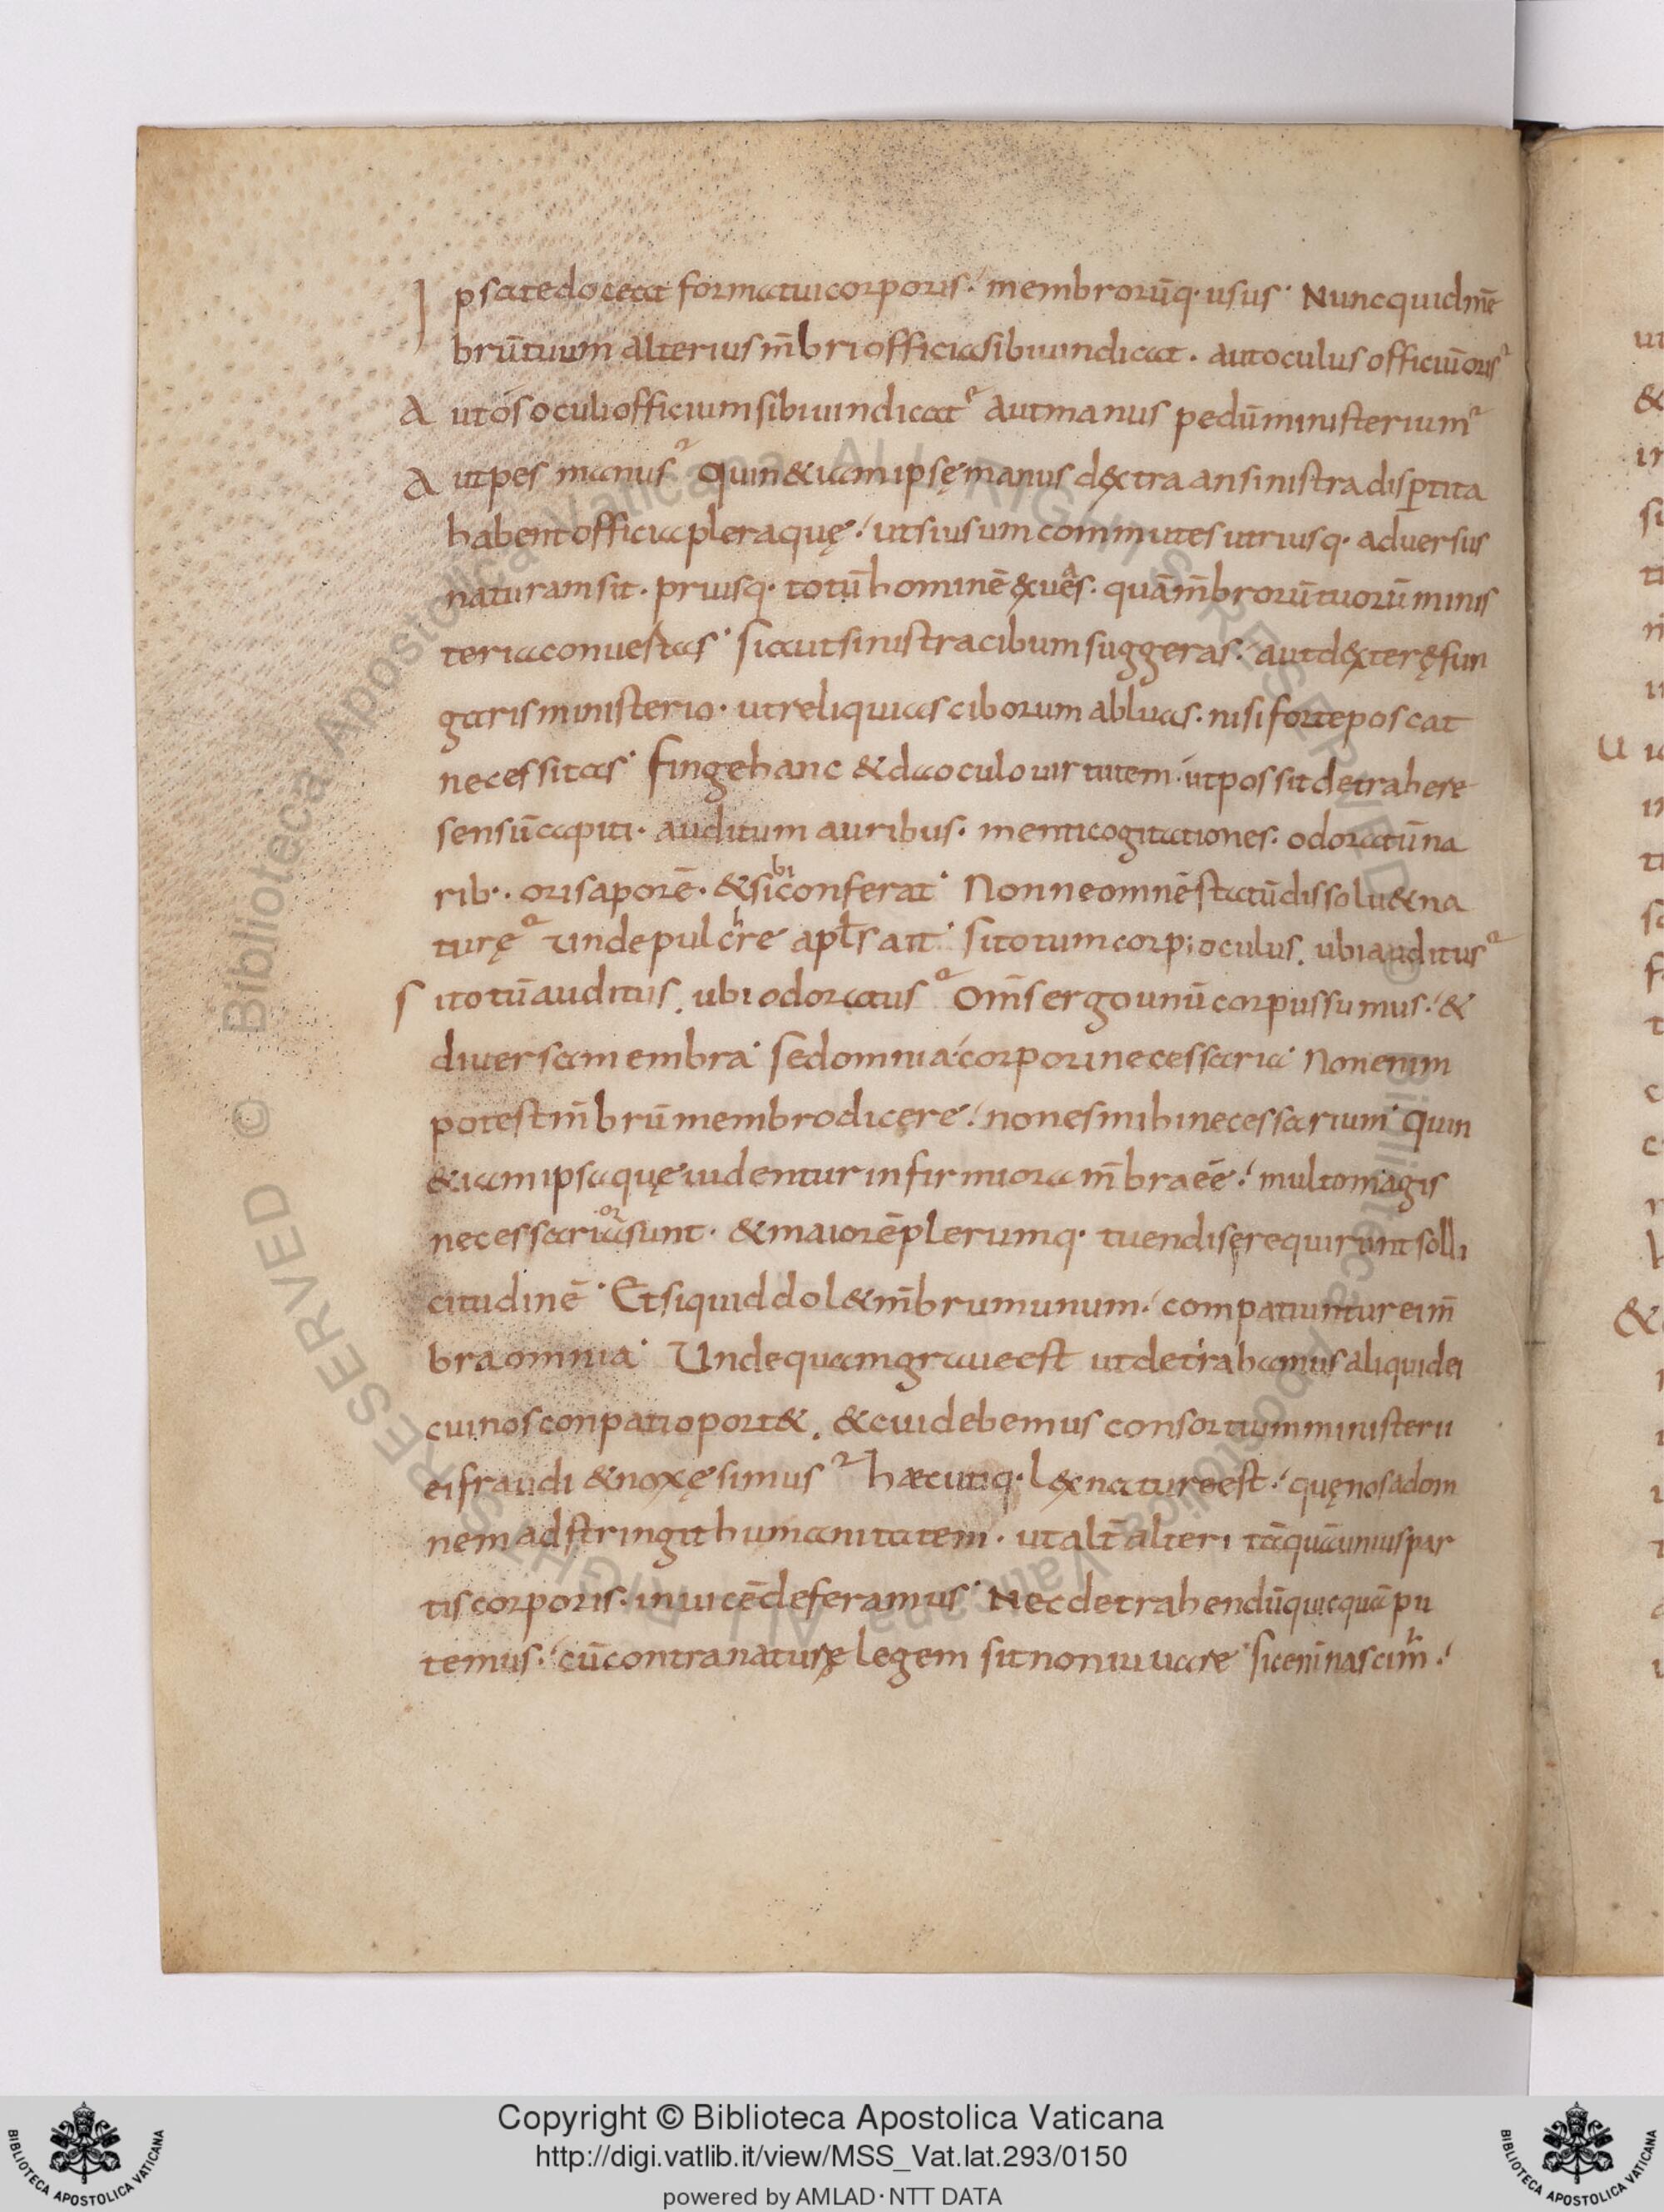 Ipsatedoceat formatuicorporis. membrorūq· usus· Nuncquidmē
brūtuum alterius m̄briofficiasibiuindicat. autoculus officiūoris?
A utosoculiofficiumsibiuindicat? Autmanus pedūministerium?
A utpes manus? Quin&iamipsęmanus d&xtra ansinistra disp̄tita
habentofficiapleraquę. utsiusumcommutes utriusq· aduersus
naturamsit. priusq· totūhominē &xuēs. quām̄brorūtuorūminis
teriaconuertas· Siautsinistracibumsuggeras. autd&xteręfun
garisministerio. utreliquiasciborumabluas. nisiforteposcat
necessitas· Fingehanc &daoculouirtutem. utpossitdetrahere
sensūcapiti. auditum auribus. menticogitationes. odoratūna
rib·. orisaporē. &sibiconferat· Nonneomnēstatūdissolu&na
turę? Undepulchre apl̄s ait· Sitotumcorp; oculus. ubiauditus?
S itotūauditus. ubiodoratus? Om̄s ergounūcorpussumus. &
diuersamembra· Sedomnia corporinecessaria· Nonenim
potestm̄brūmembrodicere. nonesmihinecessarium· Quin
&iamipsaquęuidenturinfirmioram̄braeē. multomagis
necessariorasunt. &maiorēplerumq· tuendiserequiruntsolli
citudinē· Etsiquiddol&m̄brumunum. compatiuntureim̄
braomnia· Undequamgraueest utdetrahamusaliquidei
cuinosconpatioport&. &cuidebemus consortiumministerii
eifraudi &noxęsimus? Haecutiq· l&xnatureest. quęnosadom
nemadstringithumanitatem. utalt̄alteri tāquāuniuspar
tiscorporis. inuicēdeferamus· Necdetrahendūquicquāpu
temus. cūcontranaturę legem sitnoniuuare· Siceninascim̄.
Copyright © Biblioteca Apostolica Vaticana
http://digi.vatlib.it/view/MSS_Vat.lat.293/0150
powered by AMLAD·NTT DATA
BIBLIOTECA APOSTOLICA VATICANA
BIBLIOTECA APOSTOLICA VATICANA